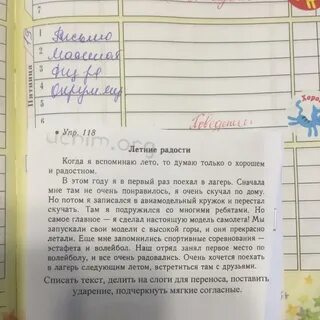 Пятница
1 Письмо
2
3 Физ ра
4 Окруж мир
5
6
Поведение
uchim.org
• Упр. 118
Летние радости
Когда я вспоминаю лето, то думаю только о хорошем
и радостном.
В этом году я в первый раз поехал в лагерь. Сначала
мне там не очень понравилось, я очень скучал по дому.
Но потом я записался в авиамодельный кружок и перестал
скучать. Там я подружился со многими ребятами. Но
самое главное — я сделал настоящую модель самолета! Мы
запускали свои модели с высокой горы, и они прекрасно
летали. Еще мне запомнились спортивные соревнования —
эстафета и волейбол. Наш отряд занял первое место по
волейболу, и все очень радовались. Очень хочется поехать
в лагерь следующим летом, встретиться там с друзьями.
Списать текст, делить на слоги для переноса, поставить
ударение, подчеркнуть мягкие согласные.